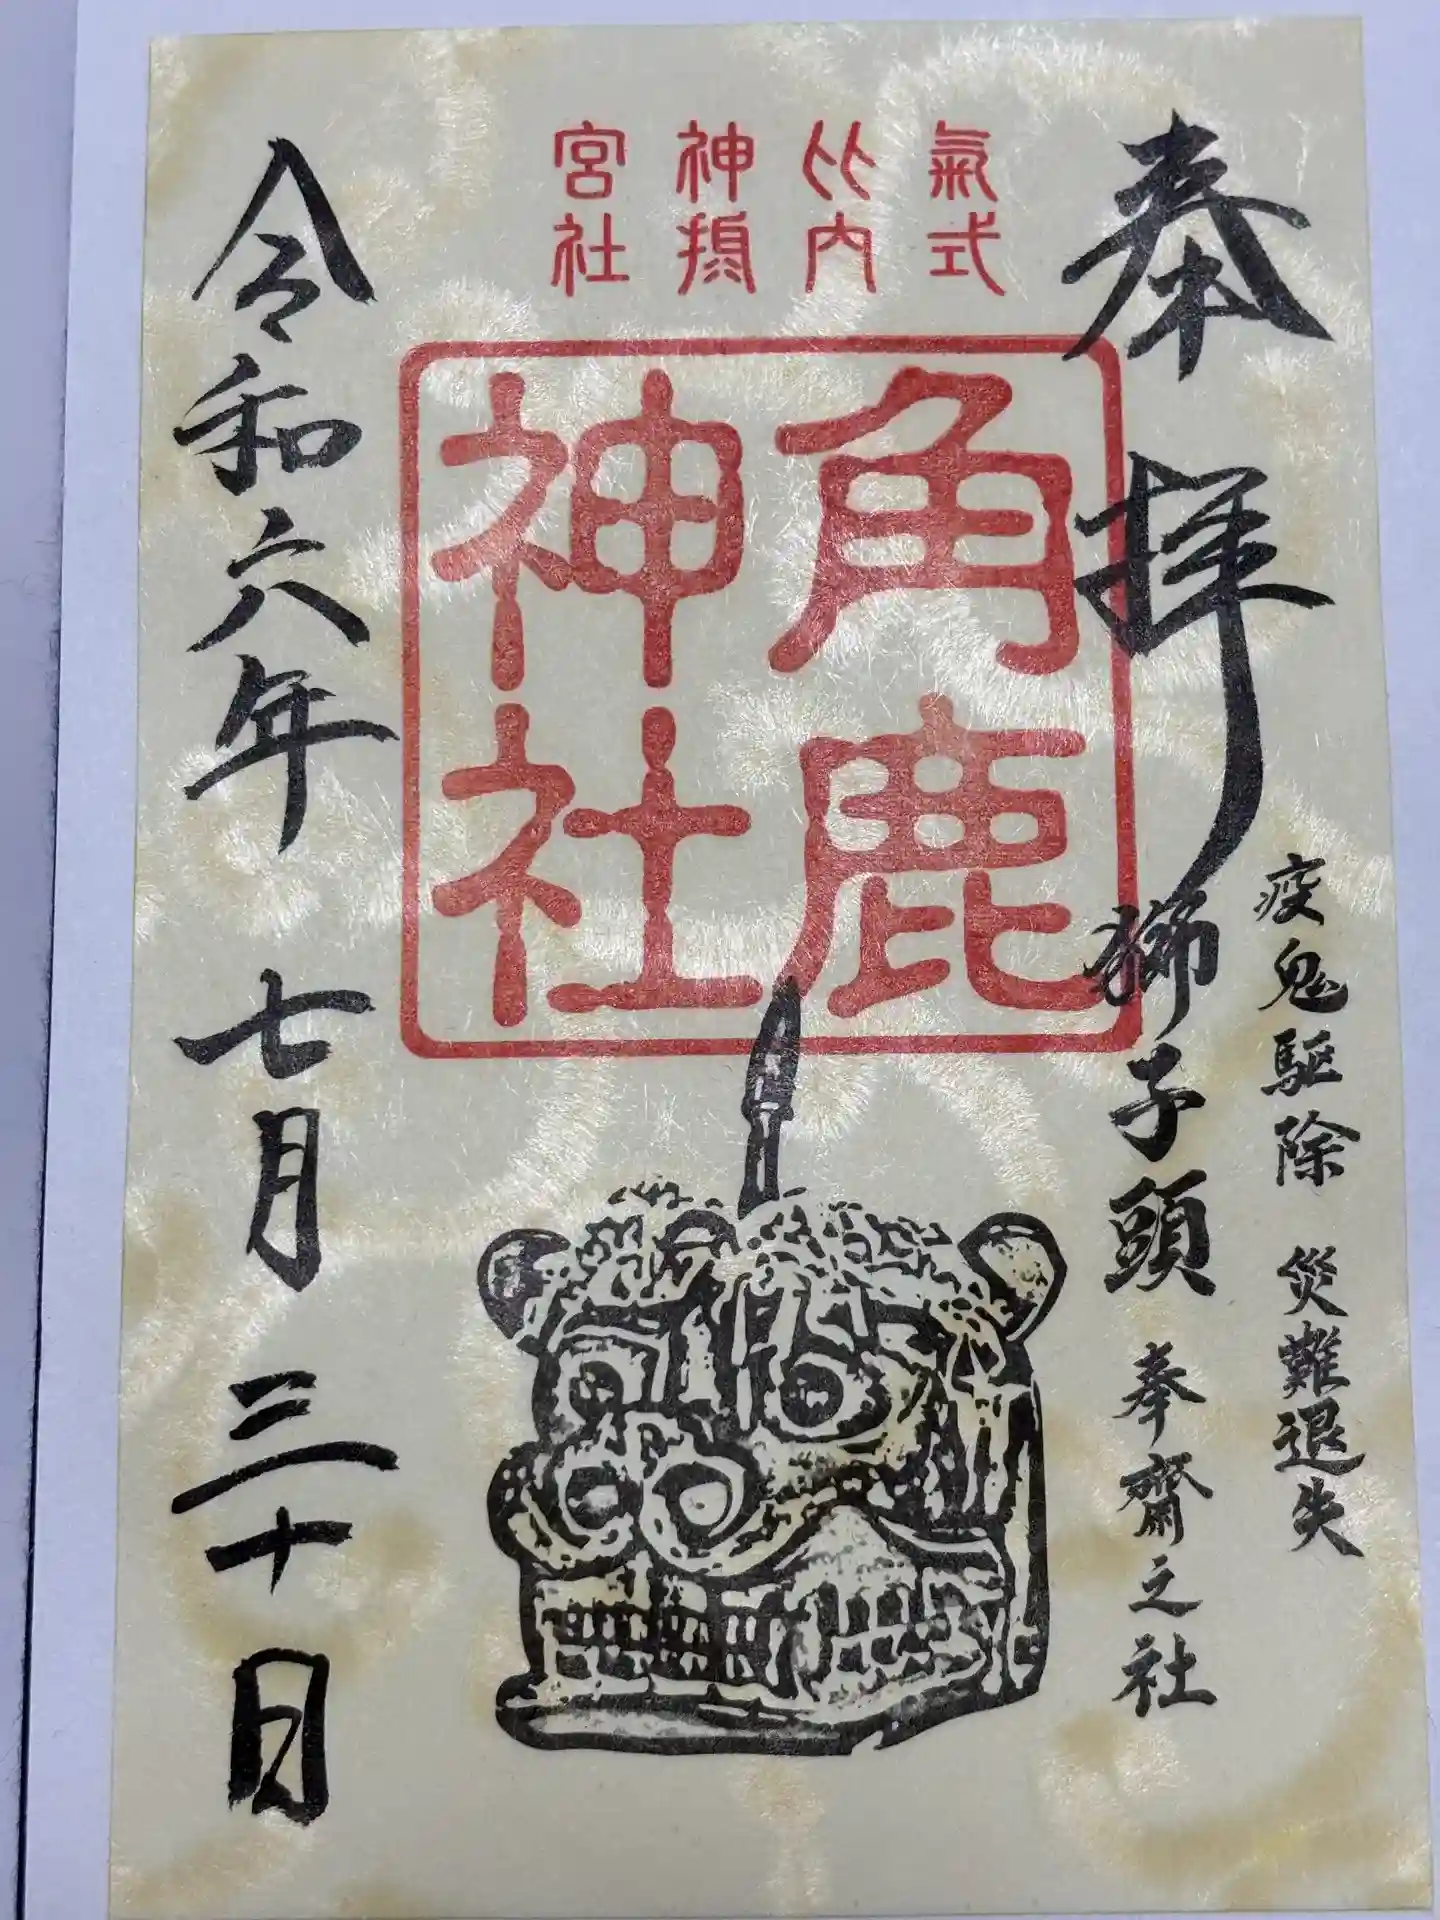 氣比神宮
式内摂社
奉拝
疫鬼駆除 災難退失
獅子頭 奉齋之社
角鹿
神社
令和六年 七月 三十日